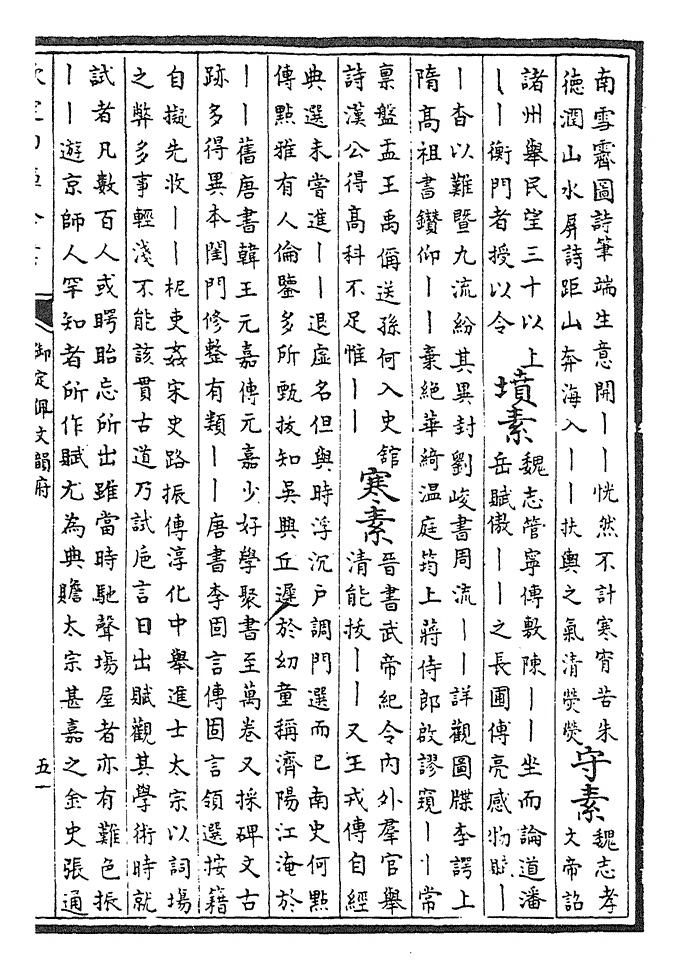 南雪霽圖詩筆端生意開丨丨恍然不計寒宵苦朱
德潤山水屏詩距山奔海入丨丨扶輿之氣清熒熒
守素
魏志孝
文帝詔
諸州舉民望三十以上
丨丨衡門者授以令
墳素
魏志管寧傳敷陳丨丨坐而論道潘
岳賦傲丨丨之長圃傅亮感物賦丨
丨杳以難暨九流紛其異封劉峻書周流丨丨詳觀圖牒李諤上
隋髙祖書鑚仰丨丨棄絶華綺温庭筠上蔣侍郎啟謬窺丨丨常
禀盤盂王禹偁送孫何入史舘
詩漢公得髙科不足惟丨丨
寒素
晉書武帝紀令内外羣官舉
清能拔丨丨又王戎傳自經
典選未嘗進丨丨退虚名但與時浮沉戸調門選而已南史何點
傳點雅有人倫鑒多所甄拔知吳興丘遲於幼童稱濟陽江淹於
丨丨舊唐書韓王元嘉傳元嘉少好學聚書至萬卷又採碑文古
跡多得異本閨門修整有類丨丨唐書李固言傳固言領選按籍
自擬先收丨丨柅吏姦宋史路振傳淳化中舉進士太宗以詞塲
之弊多事輕淺不能該貫古道乃試巵言日出賦觀其學術時就
試者凡數百人或腭眙忘所出雖當時馳聲塲屋者亦有難色振
丨丨遊京師人罕知者所作賦尤為典贍太宗甚嘉之金史張通
御定佩文韻府